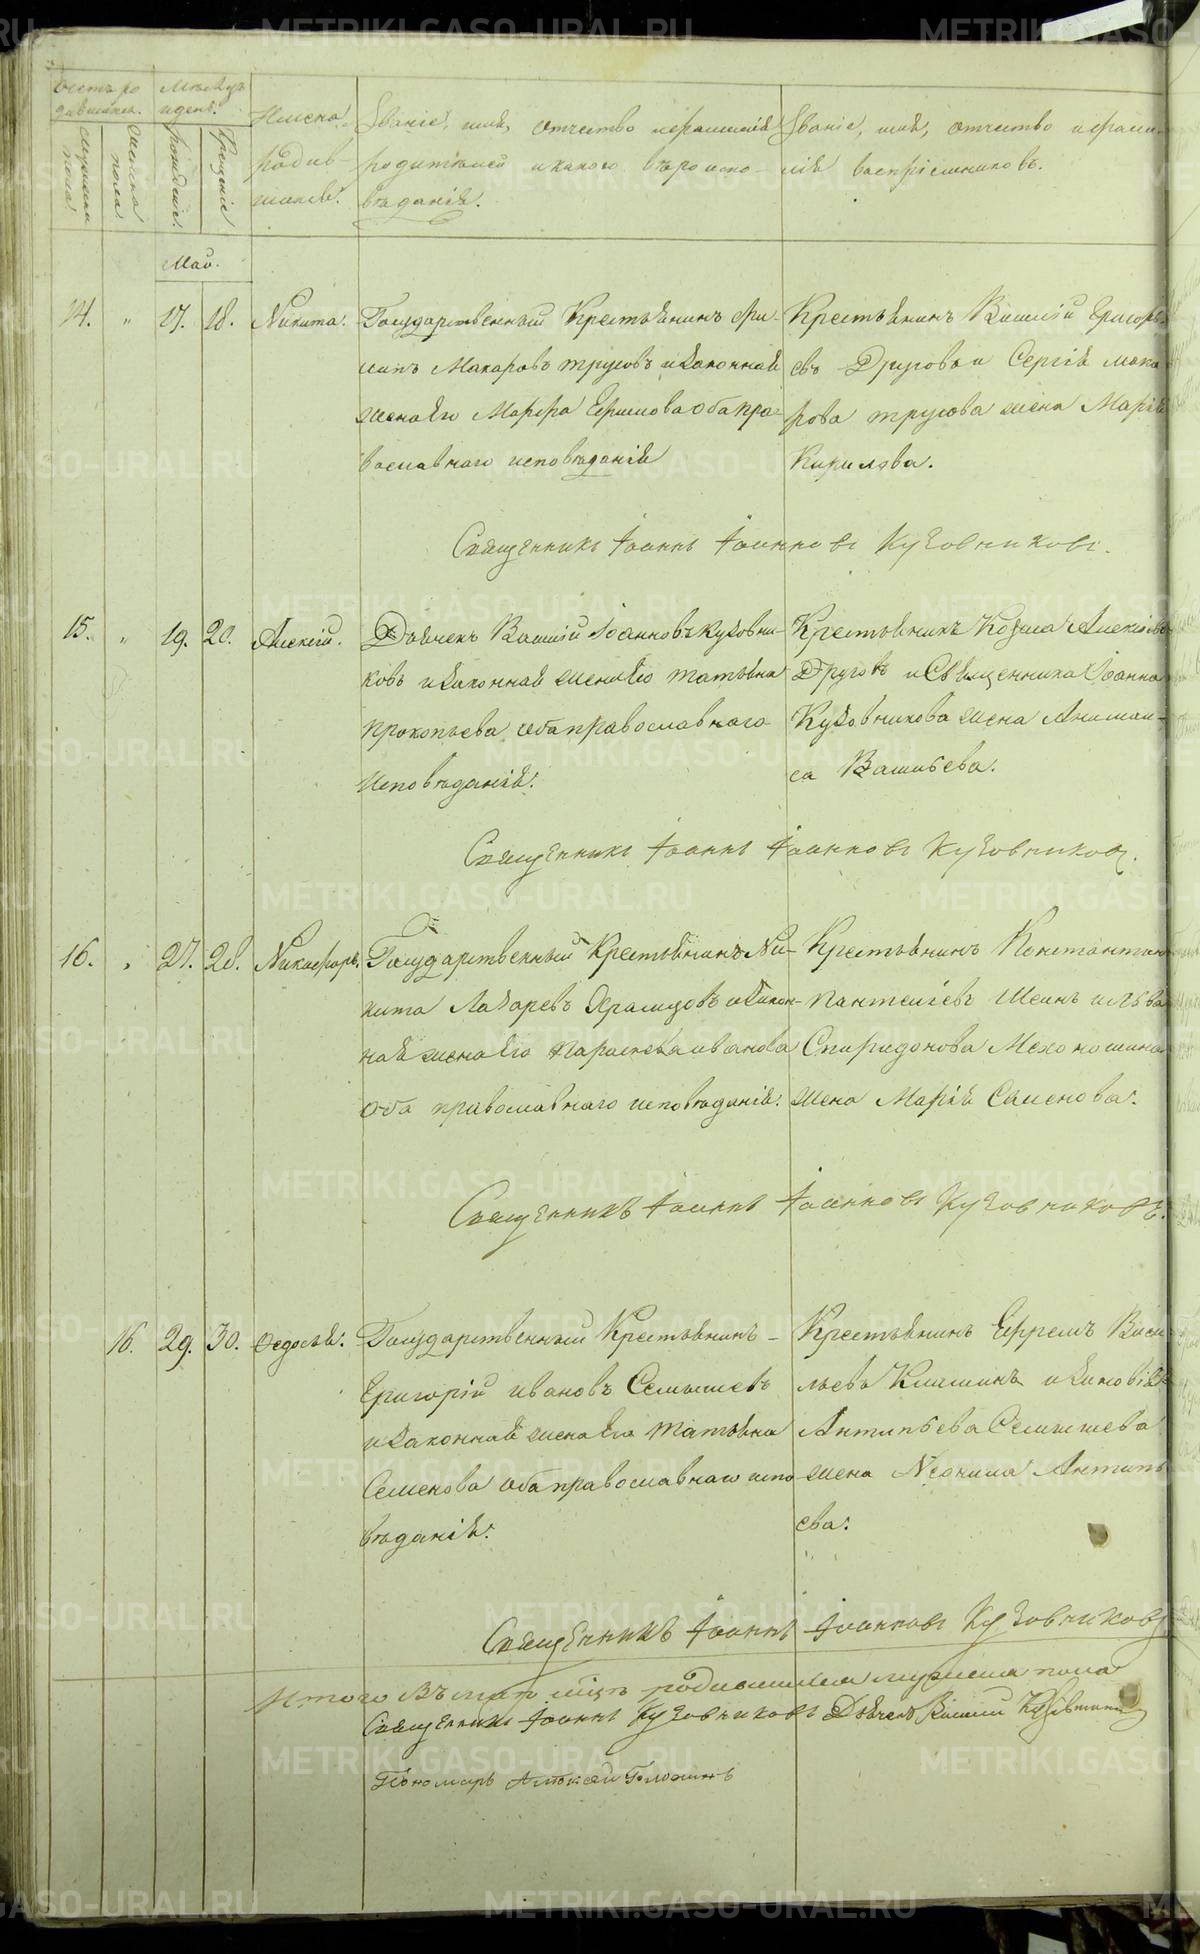 Счетъ ро
дившихся.
Мѣсяцъ
и день.
Мужеска
пола.
Женска
пола.
Рожденіе.
Крещеніе
Имена
родив-
шихся.
Званіе, имя, отчество и фамилія
родителей и какого вѣроиспо-
вѣданія.
Званіе, имя, отчество и фами-
лія воспріемниковъ.
Май.
14. " 17. 18. Никита.
Государственный Крестьянинъ Фи-
липъ Макаровъ Трусовъ и законная
жена его Марфа Ефимова оба пра-
вославнаго исповѣданія
Крестьянинъ Василій Григорь-
евъ Друговъ и Сергія Мака
рова Трусова жена Марія
Кирилова.
Священникъ Іоаннъ Іоанновъ Кузовниковъ.
15. " 19. 20. Алексій.
Дьячекъ Василій Іоанновъ Кузовни-
ковъ и законная жена его Татьяна
Прокопьева оба православнаго
исповѣданія.
Крестьянинъ Козма Алексѣевъ
Друговъ и Священника Іоанна
Кузовникова жена Анисья
Васильева.
Священникъ Іоаннъ Іоанновъ Кузовниковъ.
16. " 27. 28. Никифоръ.
Государственный Крестьянинъ Ни-
кита Лазаревъ и закон-
ная жена его Параскева Иванова
оба православнаго исповѣданія.
Крестьянинъ Константинъ
Пантелѣевъ Шеинъ и Льва
Спиридонова Мехоношина
жена Марія Семенова.
Священникъ Іоаннъ Іоанновъ Кузовниковъ.
16. 29. 30. Ѳедосья.
Государственный Крестьянинъ -
Григорій Ивановъ Семышевъ
и законная жена его Татьяна
Семенова оба православнаго испо
вѣданія.
Крестьянинъ Ефремъ Васи
льевъ и Зиновія
Антипьева Семышева
жена Неонила Антипь
ева.
Священникъ Іоаннъ Іоанновъ Кузовниковъ
Итого въ маѣ мцѣ родившихся мужеска пола
Священникъ Іоаннъ Кузовниковъ Дьячекъ Василій Кузовниковъ
Пономарь Алексѣй
METRIKI.GASO-URAL.RU